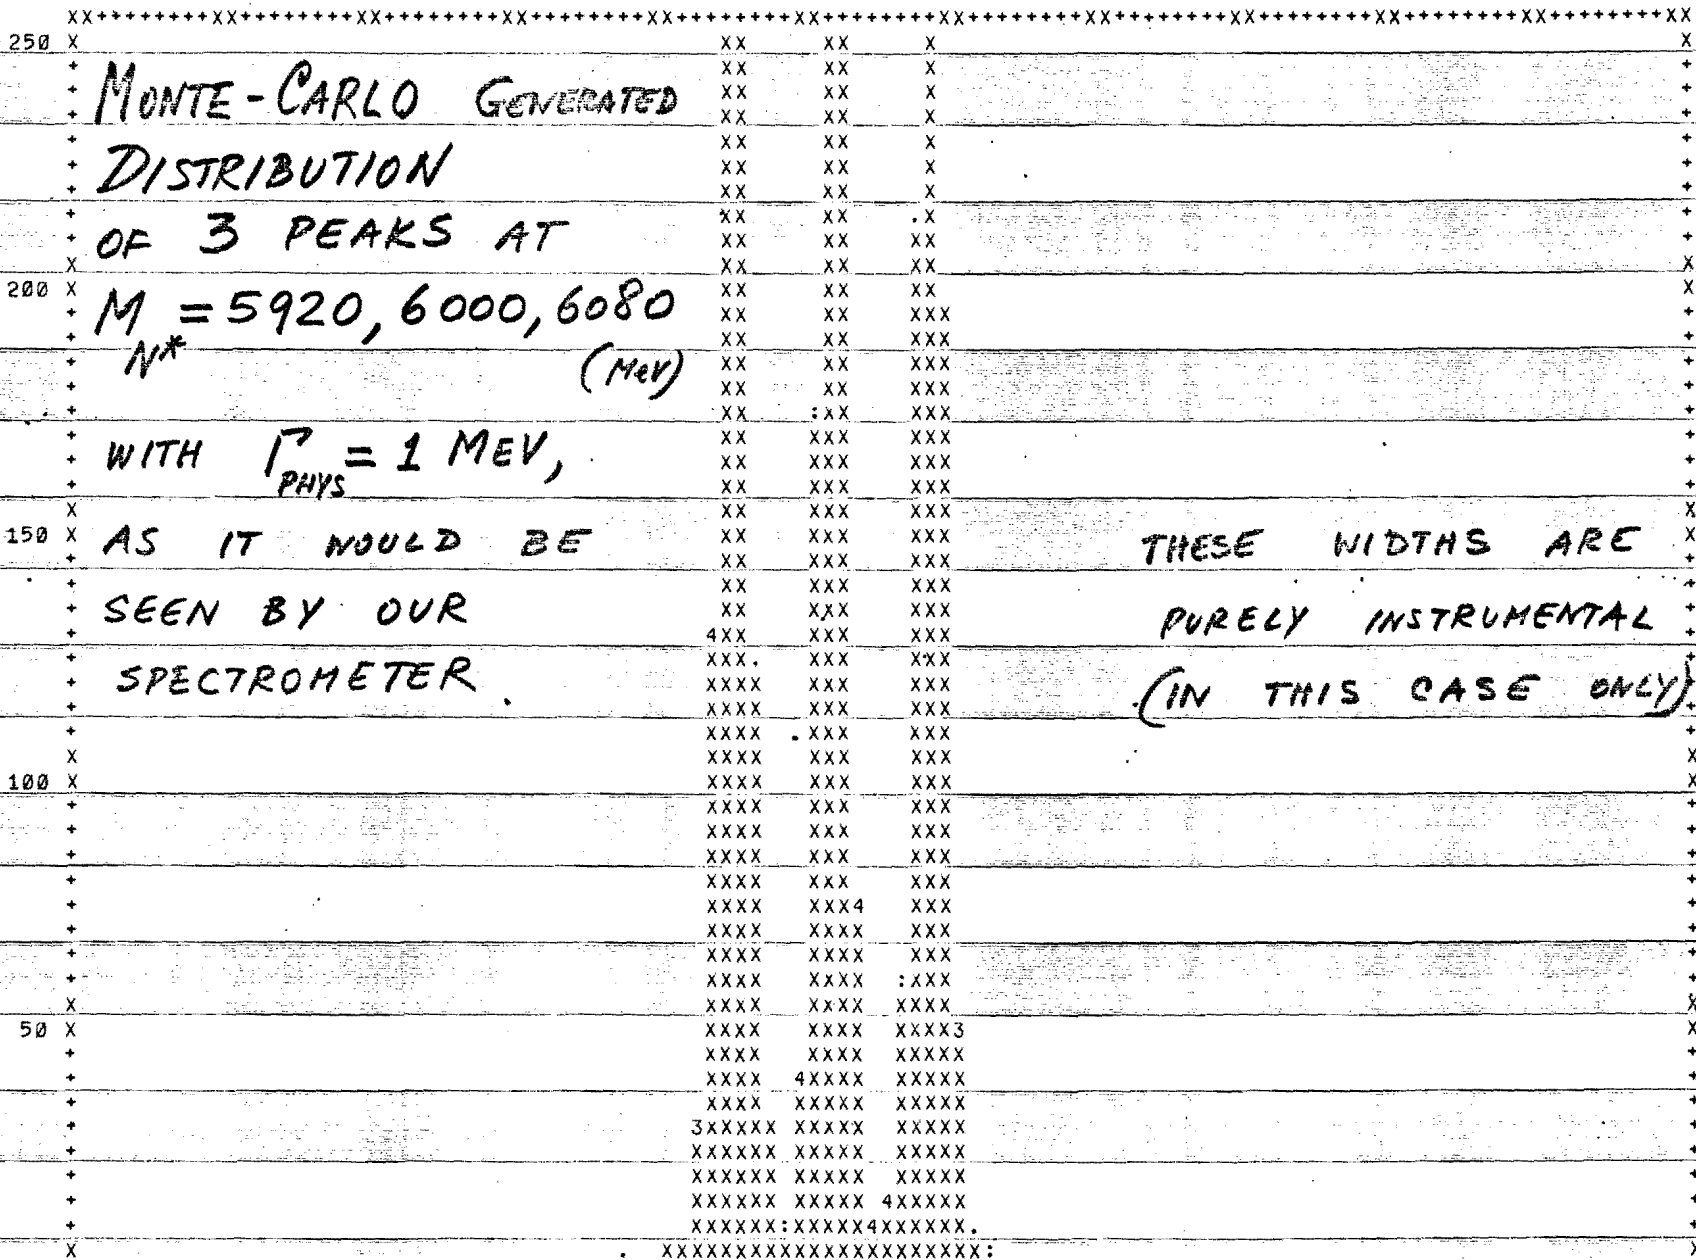 250
MONTE-CARLO GENERATED
DISTRIBUTION
OF 3 PEAKS AT
200
M = 5920, 6000, 6080
N*
(MeV)
WITH Γ = 1 MEV,
PHYS
150
AS IT WOULD BE
SEEN BY OUR
SPECTROMETER
THESE WIDTHS ARE
PURELY INSTRUMENTAL
(IN THIS CASE ONLY)
100
50